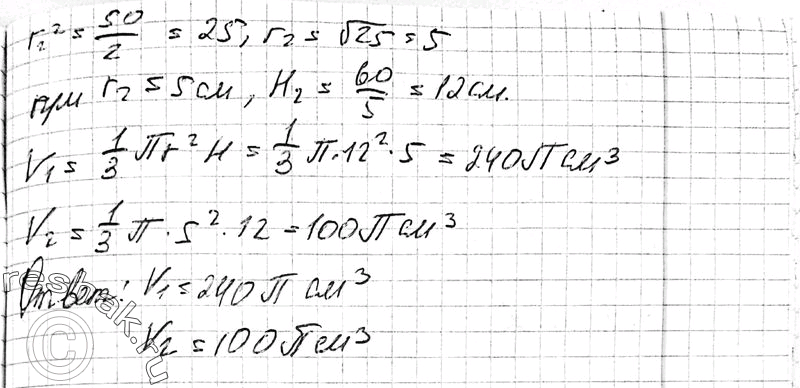 r₂² = 50/2 = 25, r₂ = √25 = 5
при r₂ = 5 см, H₂ = 60/5 = 12 см.
V₁ = 1/3 πr² H = 1/3 π·12²·5 = 240π см³
V₂ = 1/3 π·5²·12 = 100π см³
Ответ: V₁ = 240π см³
V₂ = 100π см³
©reshak.ru